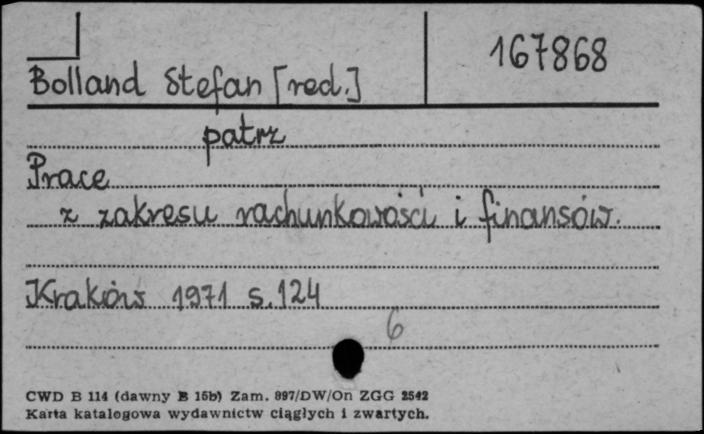 167868
Bolland Stefan [red.]
patrz
Prace
z zakresu rachunkowości i finansów.
Kraków 1971 s. 124
6
CWD B 114 (dawny B 15b) Zam. 897/DW/On ZGG 2542
Karta katalogowa wydawnictw ciągłych i zwartych.